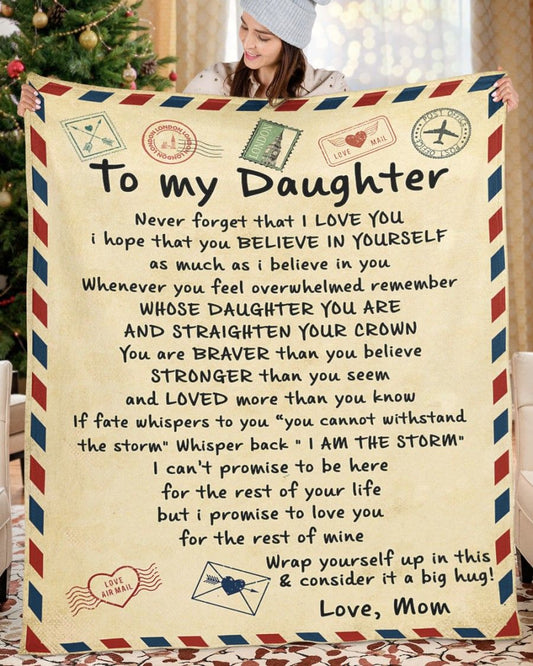 LONDON LONDON LONDON
LONDON
LOVE MAIL
POST OFFICE
POST OFFICE
To my Daughter
Never forget that I LOVE YOU
i hope that you BELIEVE IN YOURSELF
as much as i believe in you
Whenever you feel overwhelmed remember
WHOSE DAUGHTER YOU ARE
AND STRAIGHTEN YOUR CROWN
You are BRAVER than you believe
STRONGER than you seem
and LOVED more than you know
If fate whispers to you “you cannot withstand
the storm" Whisper back " I AM THE STORM"
I can't promise to be here
for the rest of your life
but i promise to love you
for the rest of mine
Wrap yourself up in this
& consider it a big hug!
Love, Mom
LOVE
AIR MAIL